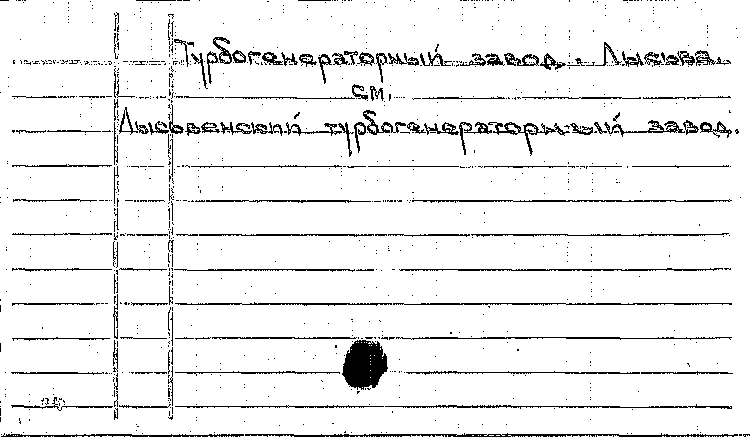 Турбогенераторный завод. Лысьва.
см.
Лысьвенский турбогенераторный завод.